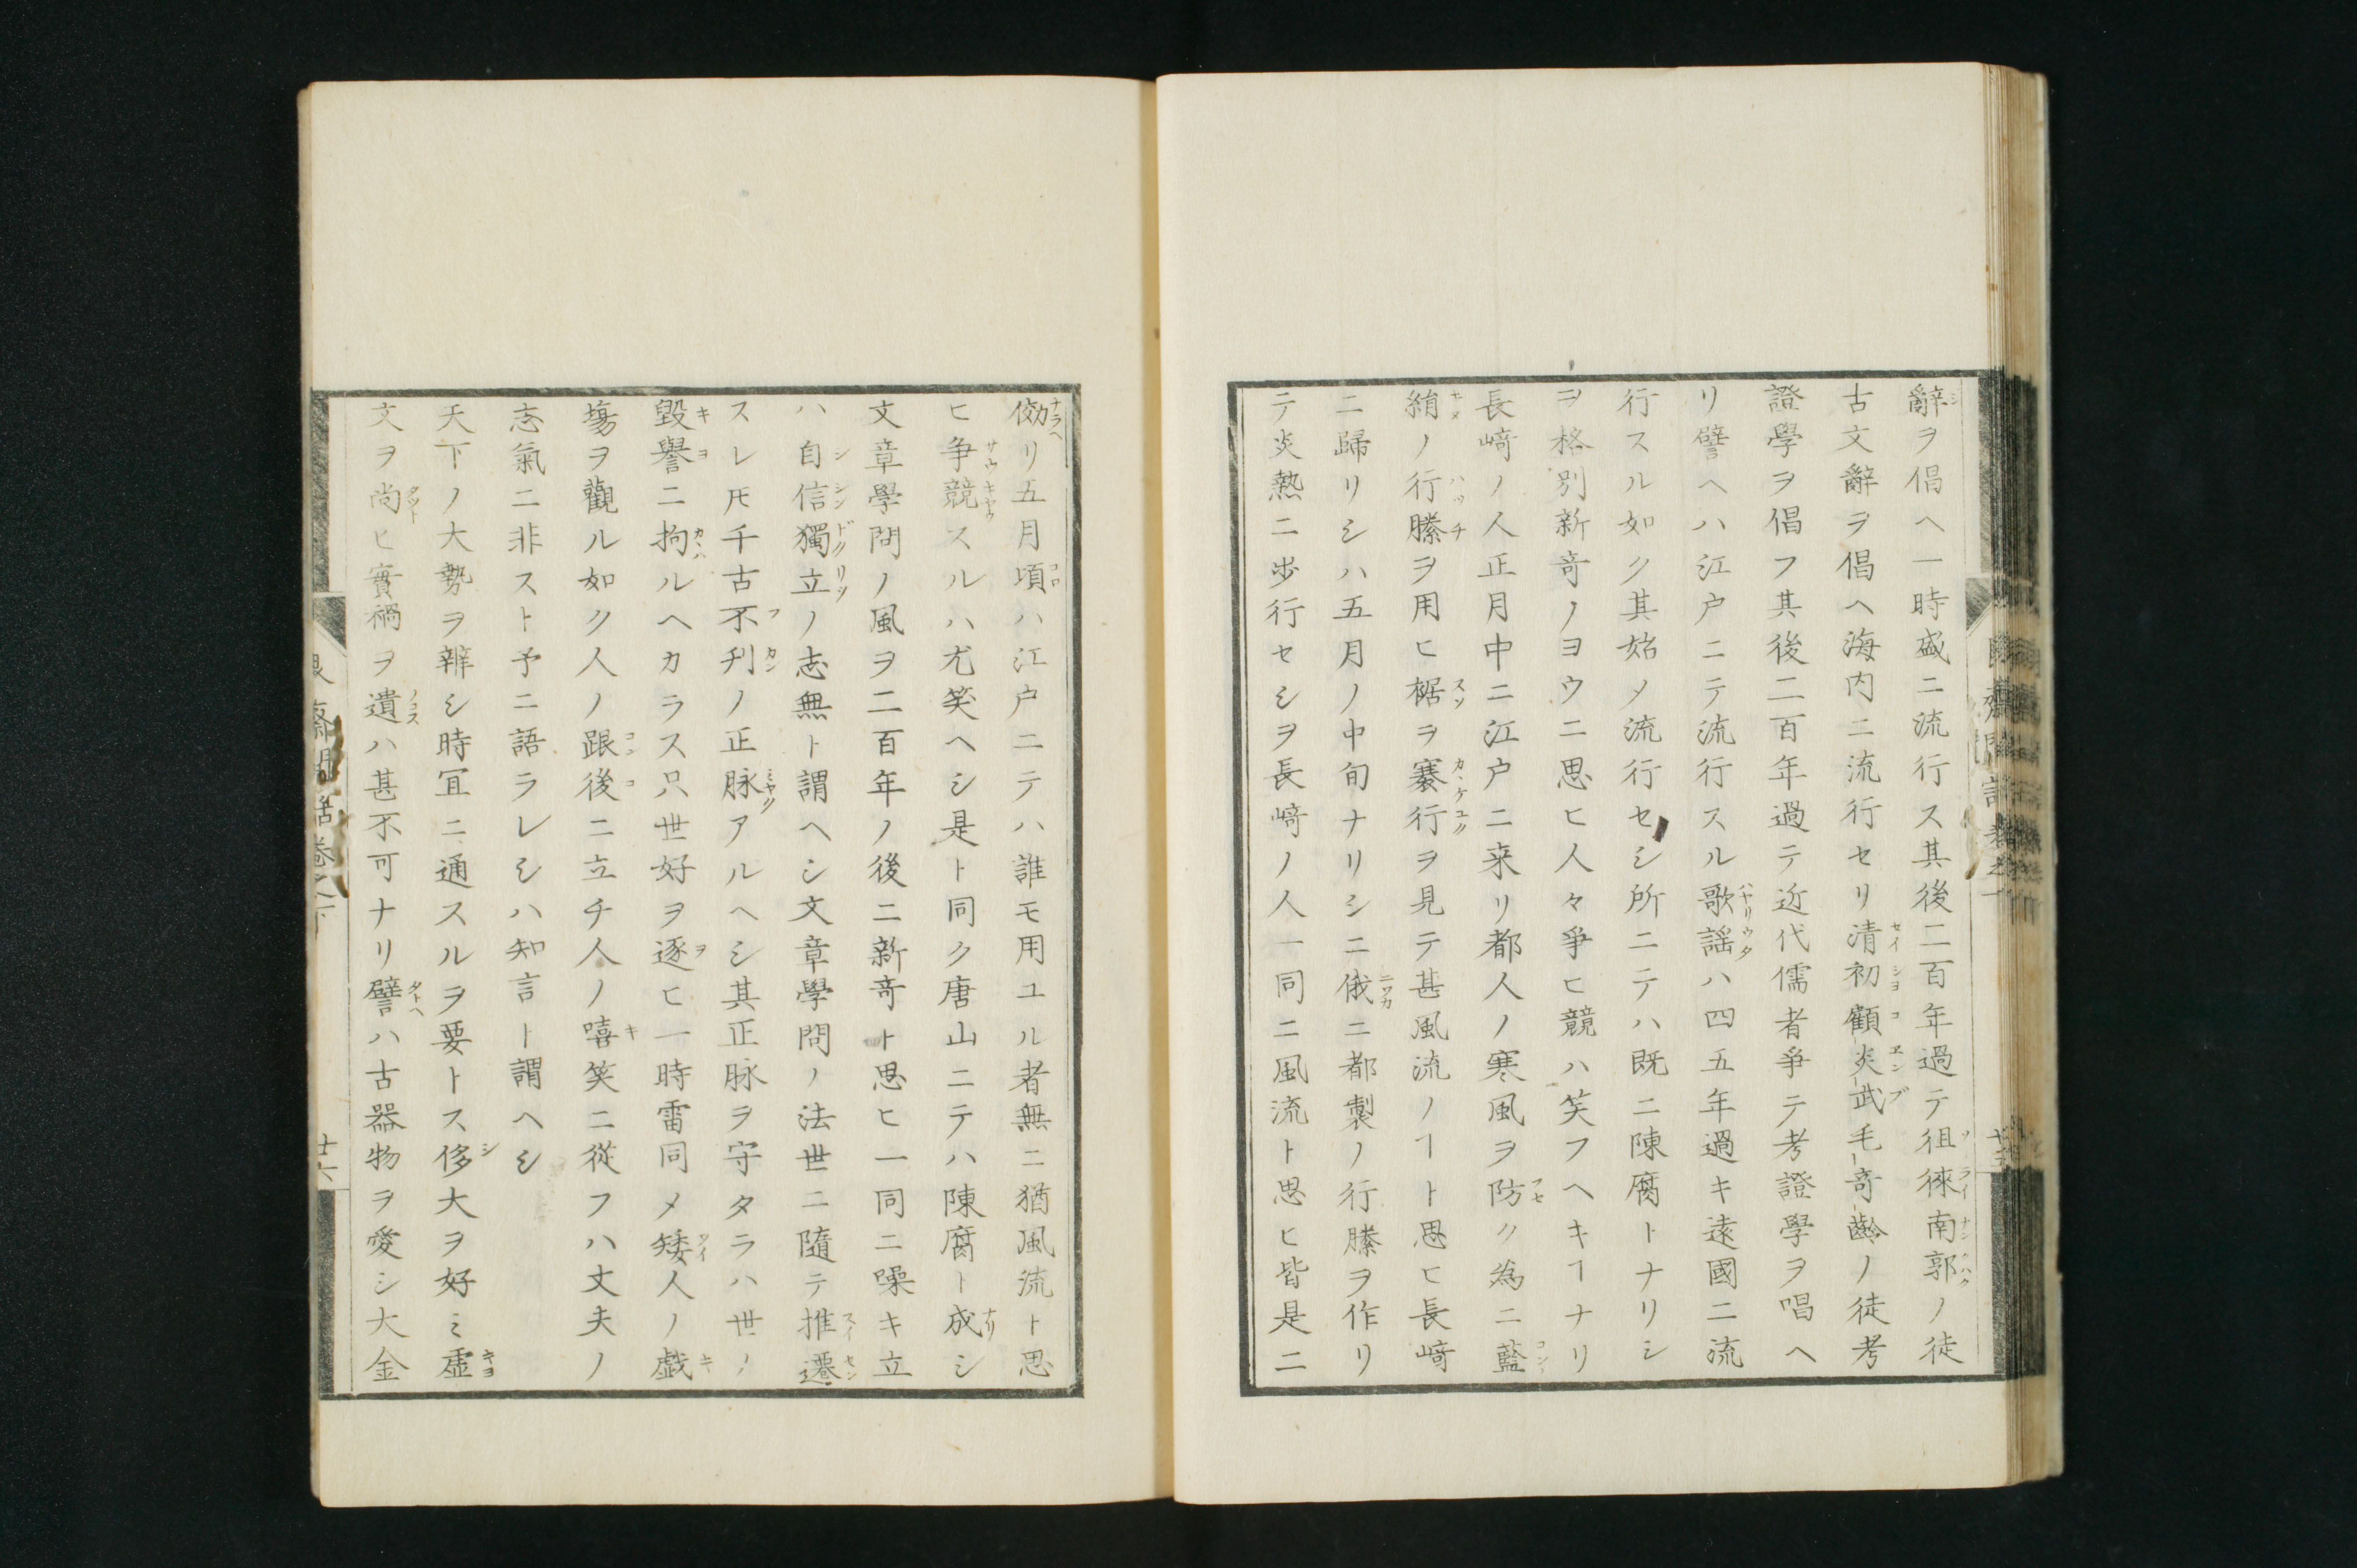 辭ヲ倡ヘ一時盛ニ流行ス其後二百年過テ徂徠南郭ノ徒
古文辭ヲ倡ヘ海内ニ流行セリ清初顧炎武毛奇齡ノ徒考
證學ヲ倡フ其後二百年過テ近代儒者爭テ考證學ヲ唱ヘ
リ譬ヘハ江户ニテ流行スル歌謡ハ四五年過キ遠國ニ流
行スル如ク其始メ流行セシ所ニテハ既ニ陳腐トナリシ
ヲ格別新竒ノヨウニ思ヒ人々爭ヒ競ハ笑フヘキヿナリ
長﨑ノ人正月中ニ江户ニ来リ都人ノ寒風ヲ防ク為ニ藍
綃ノ行縢ヲ用ヒ裾ヲ褰行ヲ見テ甚風流ノヿト思ヒ長﨑
ニ歸リシハ五月ノ中旬ナリシニ俄ニ都製ノ行縢ヲ作リ
テ炎熱ニ步行セシヲ長﨑ノ人一同ニ風流ト思ヒ皆是ニ
傚リ五月頃ハ江户ニテハ誰モ用ユル者無ニ猶風流ト思
ヒ争競スルハ尤笑ヘシ是ト同ク唐山ニテハ陳腐ト成シ
文章學問ノ風ヲ二百年ノ後ニ新竒ト思ヒ一同ニ噪キ立
ハ自信獨立ノ志無ト謂ヘシ文章學問ノ法世ニ隨テ推遷
スレ𪜈千古不刋ノ正脉アルヘシ其正脉ヲ守タラハ世ノ
毀譽ニ拘ルヘカラス只世好ヲ逐ヒ一時雷同メ矮人ノ戯
塲ヲ觀ル如ク人ノ跟後ニ立チ人ノ嘻笑ニ從フハ丈夫ノ
志氣ニ非スト予ニ語ラレシハ知言ト謂ヘシ
天下ノ大勢ヲ辨シ時冝ニ通スルヲ要トス侈大ヲ好ミ虛
文ヲ尚ヒ實禍ヲ遺ハ甚不可ナリ譬ハ古器物ヲ愛シ大金